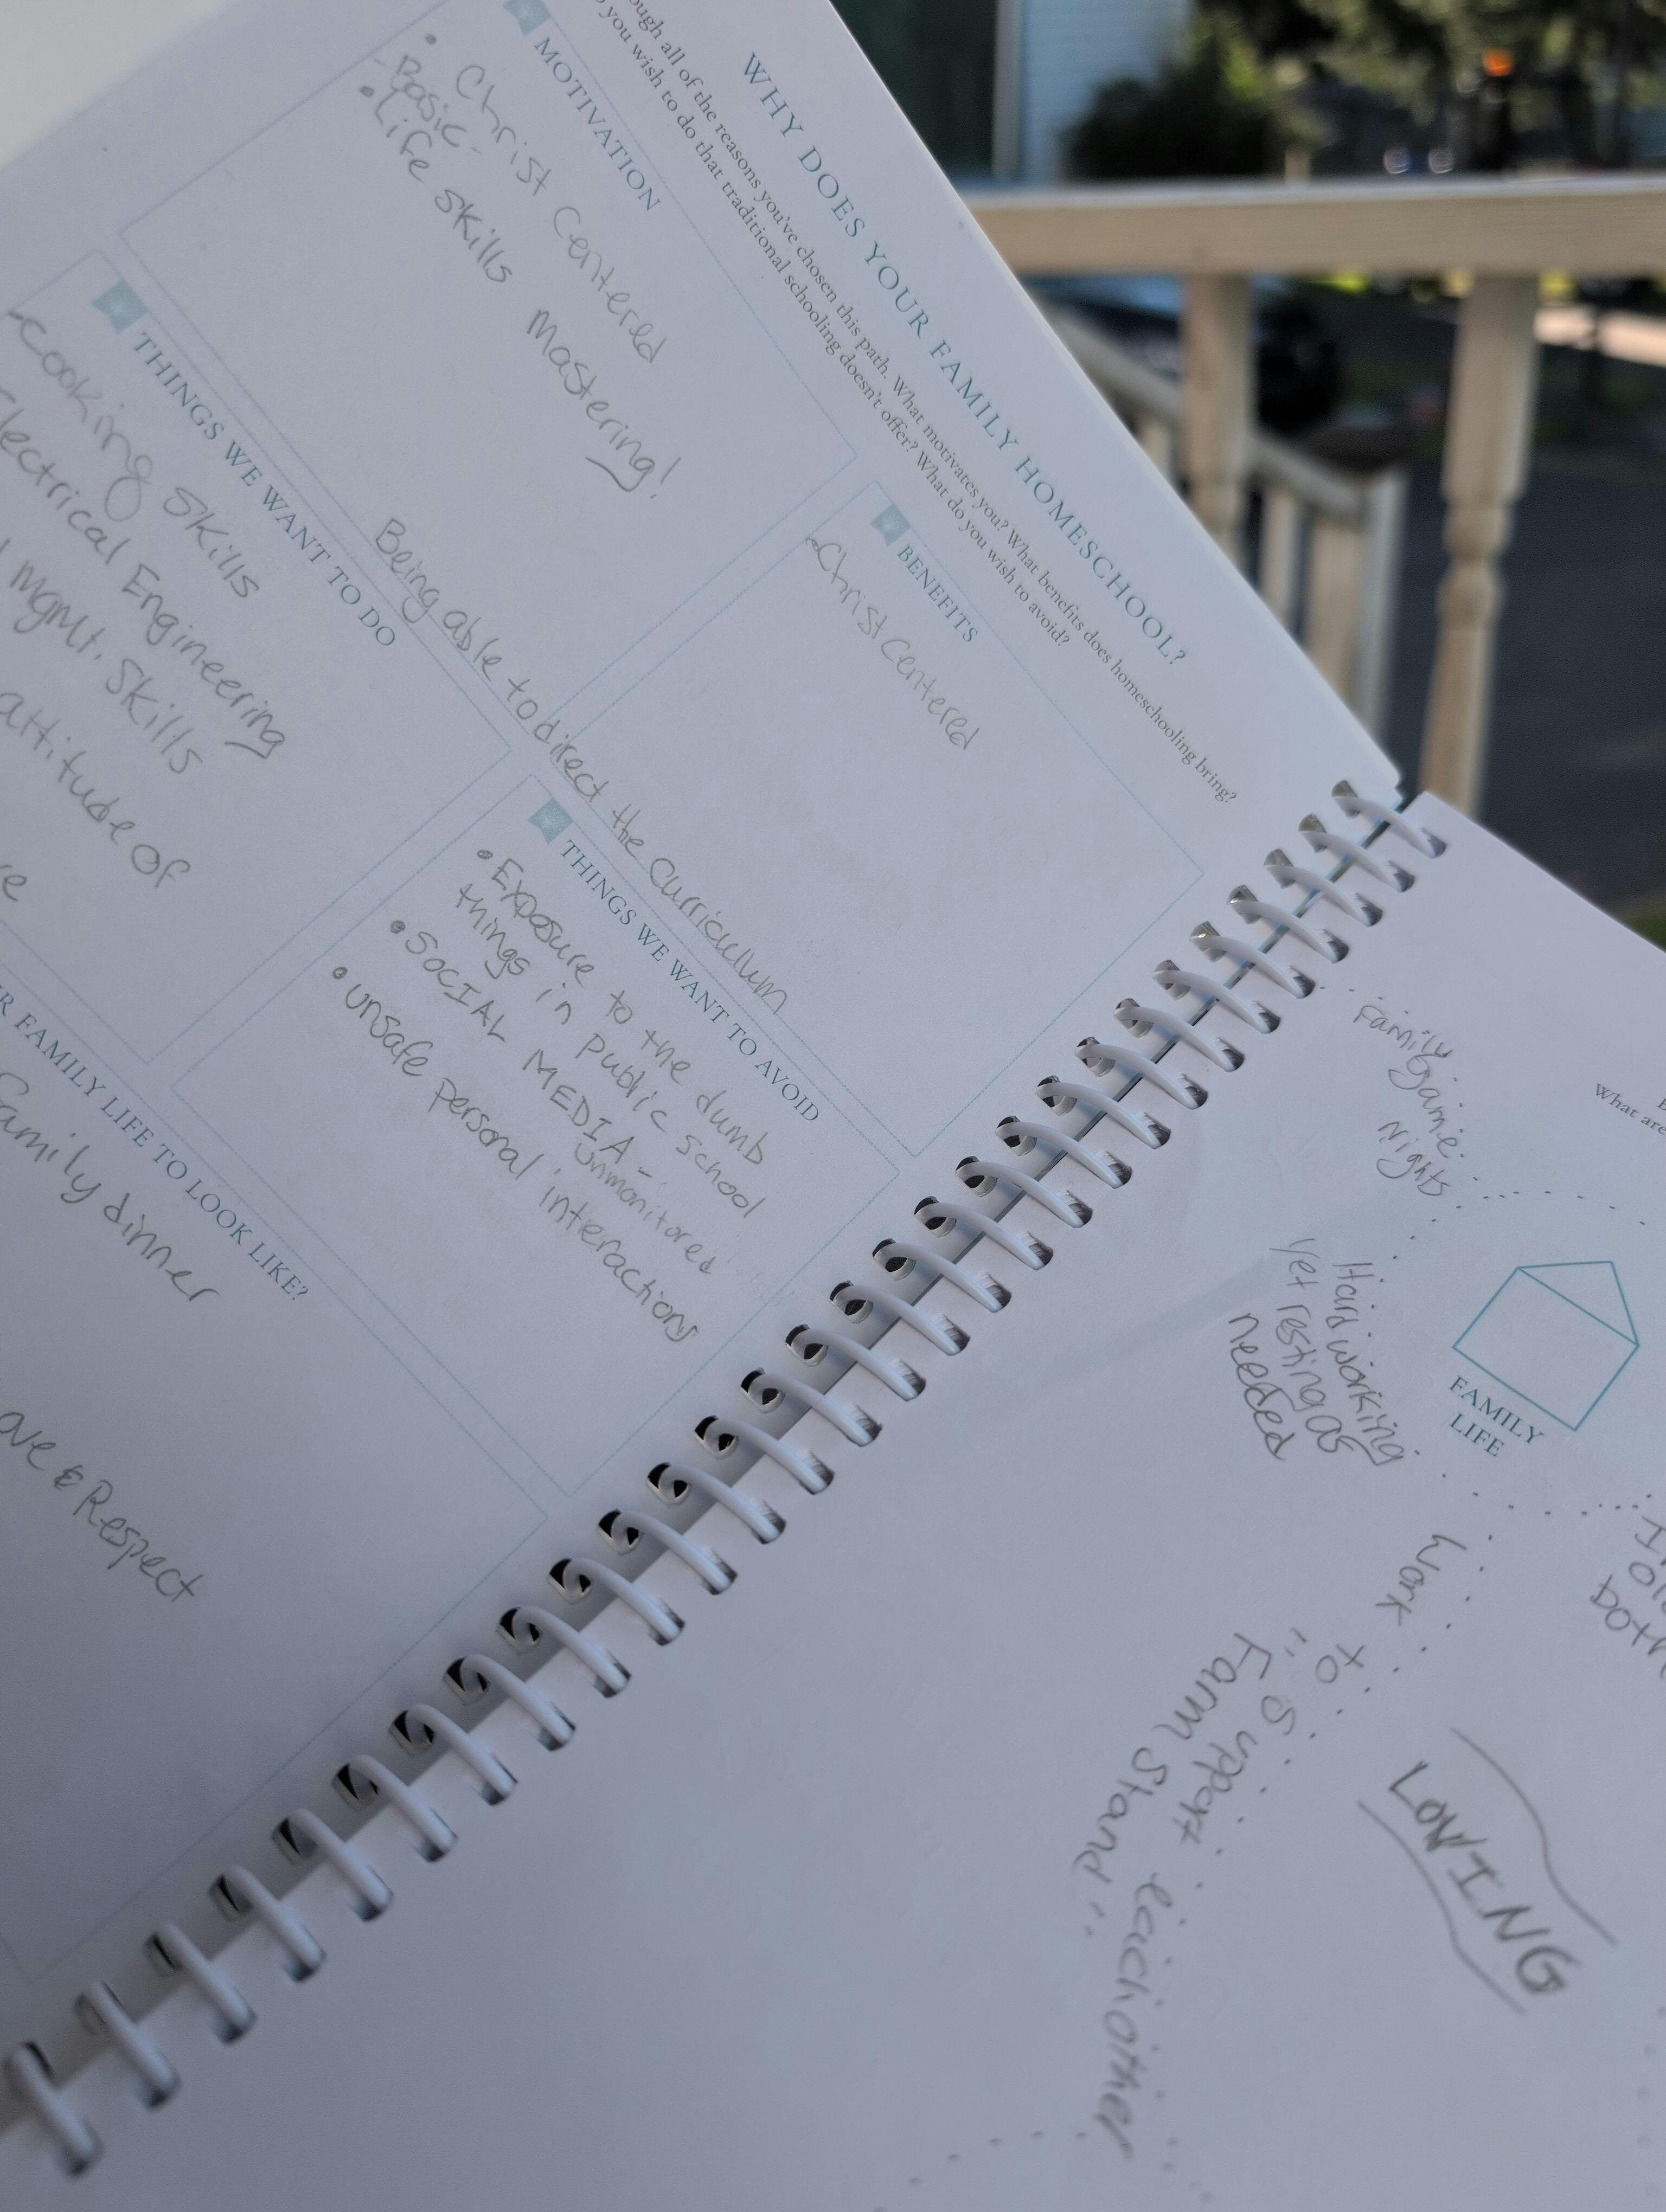 WHY DOES YOUR FAMILY HOMESCHOOL?
all of the reasons you've chosen this path. What motivates you? What benefits does homeschooling bring?
you wish to do that traditional schooling doesn't offer? What do you wish to avoid?
MOTIVATION
• Christ Centered
- Basic -
• Life skills Mastering!
BENEFITS
- Christ Centered
Being able to direct the Curriculum
THINGS WE WANT TO DO
- Cooking Skills
Electrical Engineering
Mgmt. Skills
attitude of
THINGS WE WANT TO AVOID
• Exposure to the dumb
things in public school
• SOCIAL MEDIA -
unmonitored
• unsafe personal interactions
FAMILY LIFE TO LOOK LIKE?
Family dinner
& Respect
What are
Family
game
Nights
Hardworking
Yet resting as
needed
FAMILY
LIFE
Work
to
support eachother
"Farm Stand"
both
LOVING